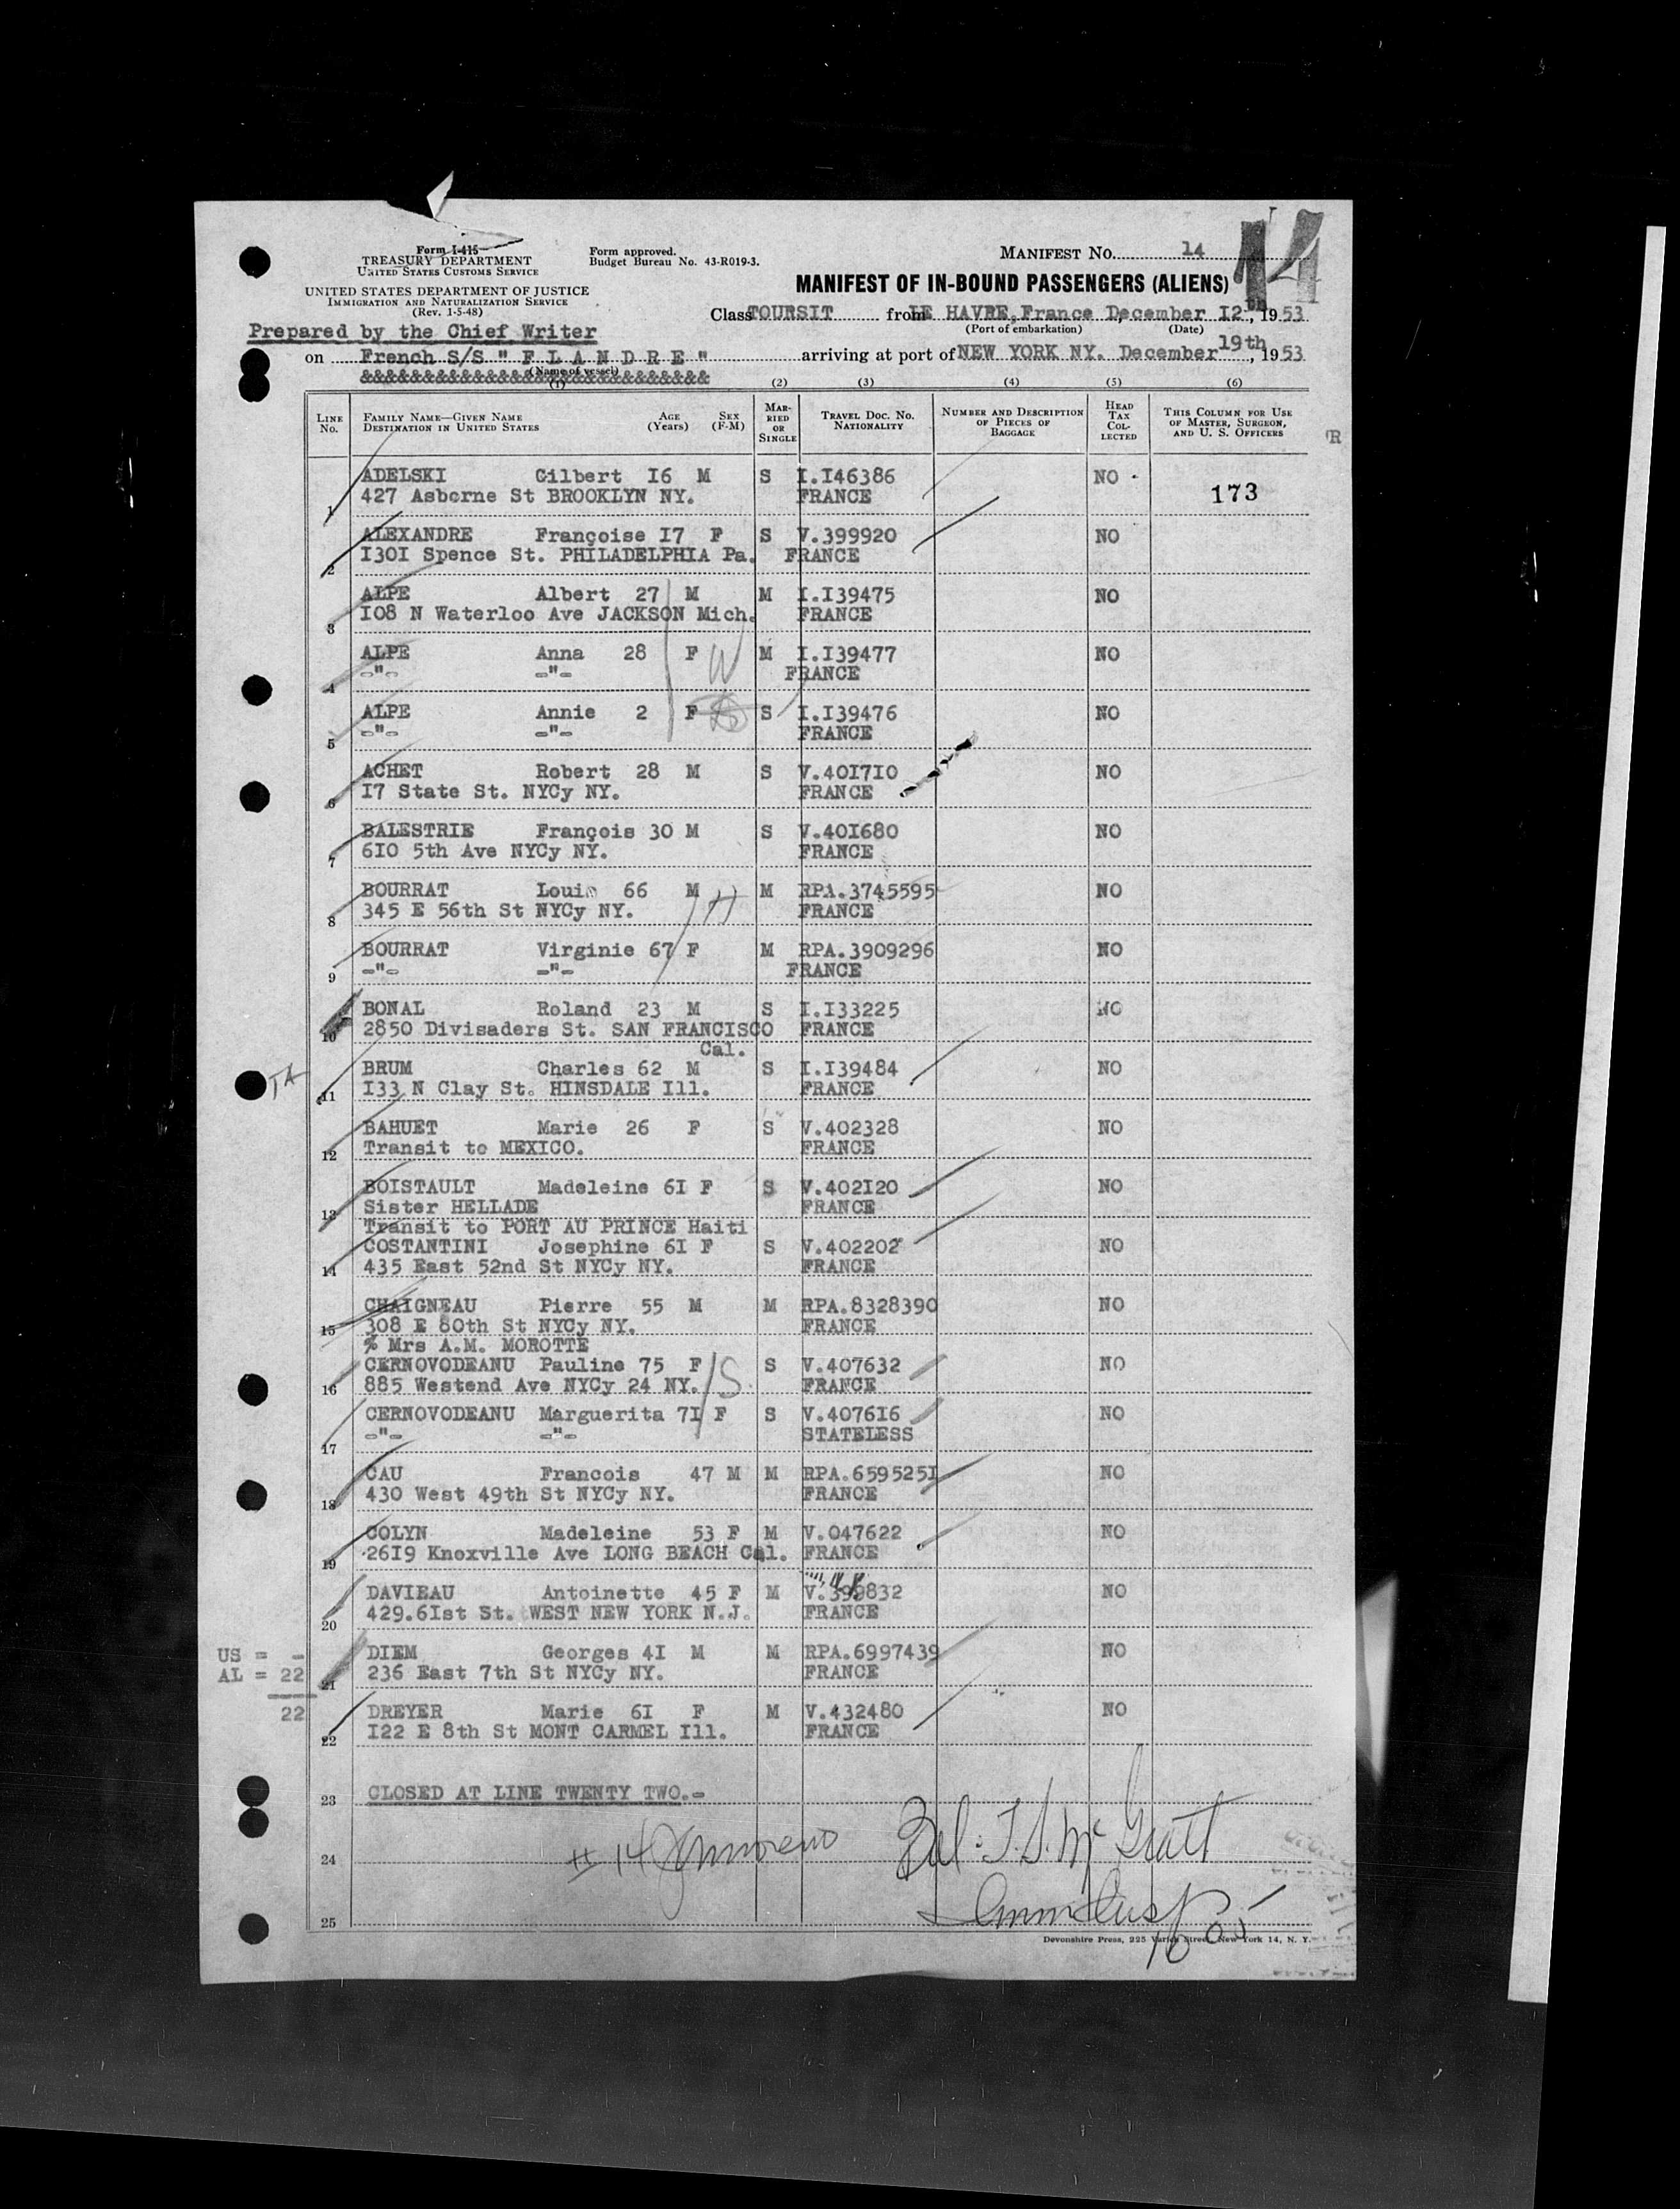 Form I-415
TREASURY DEPARTMENT
UNITED STATES CUSTOMS SERVICE
UNITED STATES DEPARTMENT OF JUSTICE
IMMIGRATION AND NATURALIZATION SERVICE
(Rev. 1-5-48)
Form approved.
Budget Bureau No. 43-R019-3.
MANIFEST No. 14
14
MANIFEST OF IN-BOUND PASSENGERS (ALIENS)
Class TOURSIT from LE HAVRE, France December I2th, 1953
(Port of embarkation) (Date)
Prepared by the Chief Writer
on French S/S " F L A N D R E " arriving at port of NEW YORK NY. December 19th, 1953
(Name of vessel)
&&&&&&&&&&&&&&&&&&&&&&&&&&&&
(1) (2) (3) (4) (5) (6)
LINE No. FAMILY NAME—GIVEN NAME DESTINATION IN UNITED STATES AGE (Years) SEX (F-M) MARRIED OR SINGLE TRAVEL DOC. NO. NATIONALITY NUMBER AND DESCRIPTION OF PIECES OF BAGGAGE HEAD TAX COLLECTED THIS COLUMN FOR USE OF MASTER, SURGEON, AND U. S. OFFICERS
ADELSKI Gilbert I6 M S I.I46386 NO
1 427 Asborne St BROOKLYN NY. FRANCE 173
ALEXANDRE Françoise I7 F S V.399920 NO
2 I30I Spence St. PHILADELPHIA Pa. FRANCE
ALPE Albert 27 M M I.I39475 NO
3 I08 N Waterloo Ave JACKSON Mich. FRANCE
ALPE Anna 28 F W M I.I39477 NO
4 -"- -"- FRANCE
ALPE Annie 2 F S I.I39476 NO
5 -"- -"- FRANCE
ACHET Robert 28 M S V.40I7I0 NO
6 I7 State St. NYCy NY. FRANCE
BALESTRIE François 30 M S V.40I680 NO
7 6I0 5th Ave NYCy NY. FRANCE
BOURRAT Louis 66 M H M RPA.3745595 NO
8 345 E 56th St NYCy NY. FRANCE
BOURRAT Virginie 67 F M RPA.3909296 NO
9 -"- -"- FRANCE
BONAL Roland 23 M S I.I33225 NO
10 2850 Divisaders St. SAN FRANCISCO FRANCE
Cal.
TA BRUM Charles 62 M S I.I39484 NO
11 I33 N Clay St. HINSDALE Ill. FRANCE
BAHUET Marie 26 F S V.402328 NO
12 Transit to MEXICO. FRANCE
BOISTAULT Madeleine 6I F S V.402I20 NO
13 Sister HELLADE FRANCE
Transit to PORT AU PRINCE Haiti
COSTANTINI Josephine 6I F S V.402202 NO
14 435 East 52nd St NYCy NY. FRANCE
CHAIGNEAU Pierre 55 M M RPA.8328390 NO
15 308 E 80th St NYCy NY. FRANCE
% Mrs A.M. MOROTTE
CERNOVODEANU Pauline 75 F S S V.407632 NO
16 885 Westend Ave NYCy 24 NY. FRANCE
CERNOVODEANU Marguerita 7I F S V.4076I6 NO
17 -"- -"- STATELESS
CAU Francois 47 M M RPA.659525I NO
18 430 West 49th St NYCy NY. FRANCE
COLYN Madeleine 53 F M V.047622 NO
19 26I9 Knoxville Ave LONG BEACH Cal. FRANCE
DAVIEAU Antoinette 45 F M V.399832 NO
20 429.6Ist St. WEST NEW YORK N.J. FRANCE
DIEM Georges 4I M M RPA.6997439 NO
21 236 East 7th St NYCy NY. FRANCE
US = -
AL = 22
22
DREYER Marie 6I F M V.432480 NO
22 I22 E 8th St MONT CARMEL Ill. FRANCE
23 CLOSED AT LINE TWENTY TWO.-
24 # 14
25
Devonshire Press, 225 Varick Street, New York 14, N. Y.